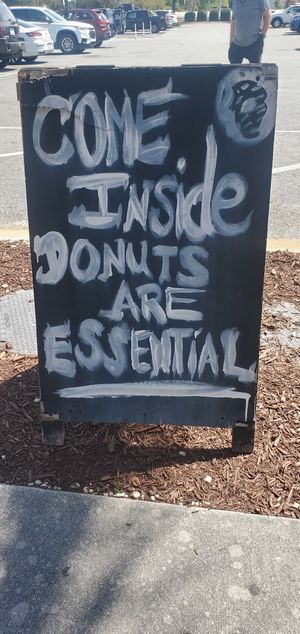 COME
Inside
DONUTS
ARE
ESSENTIAL